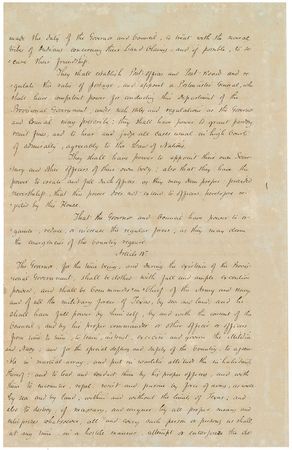 made the duty of the Governor and Council, to treat with the several
tribes of Indians concerning their Land Claims, and if possible, to se-
cure their friendship.
They shall establish Post offices and Post Roads and re-
gulate the rates of postage, and appoint a Postmaster General, who
shall have competent power for conducting this Department of the
Provisional Government under such rules and regulations as the Governor
and Council may prescribe; they shall have power to grant pardons,
remit fines, and to hear and judge all cases usual in high Courts
of admiralty, agreeably to the Law of Nations.
They shall have power to appoint their own Secre-
tary and other officers of their own body; also that they have the
power to create and fill such offices as they may deem proper: provided
nevertheless, that this power does not extend to officers heretofore re-
jected by this House.
That the Governor and Council have power to or-
ganize, reduce, or increase the regular forces, as they may deem
the emergencies of the Country require.
Article
The Governor, for the time being, and during the existence of the Provis-
ional Government, shall be clothed with full and ample executive
powers, and shall be Commander-in-Chief of the Army and Navy
and of all the military forces of Texas, by sea and land; and he
shall have full power by himself, by and with the consent of the
Council, and by his proper commander or other officer or officers
from time to time, to train, instruct, exercise and govern the militia
and Navy; and for the special defence and safety of the country, to assem-
ble in martial array, and put in warlike attitude the inhabitants
thereof; and to lead and conduct them by his proper officers, and with
them to encounter, repel, resist and pursue by force of arms, as well
by sea as by land, within and without the limits of Texas; and
also to destroy, if necessary, and conquer, by all proper means and
enterprizes whatsoever, all and every such person or persons as shall
at any time, in a hostile manner, attempt or enterprize the de-